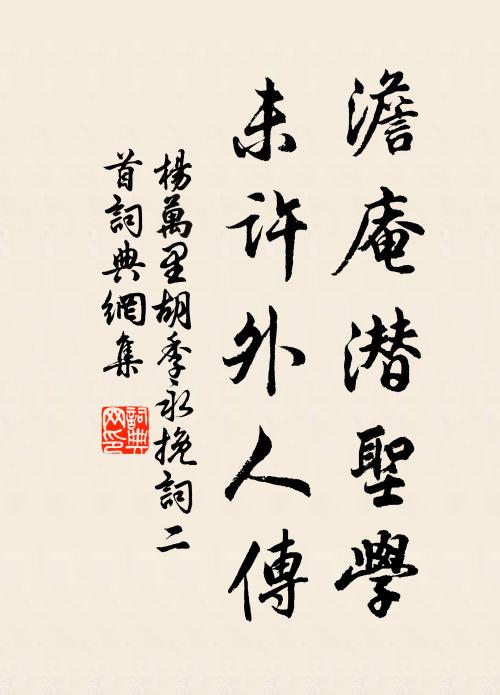 澹庵潜聖學
未許外人傳
楊萬里胡季永挽詞二
首詞典網集
詞典
网印